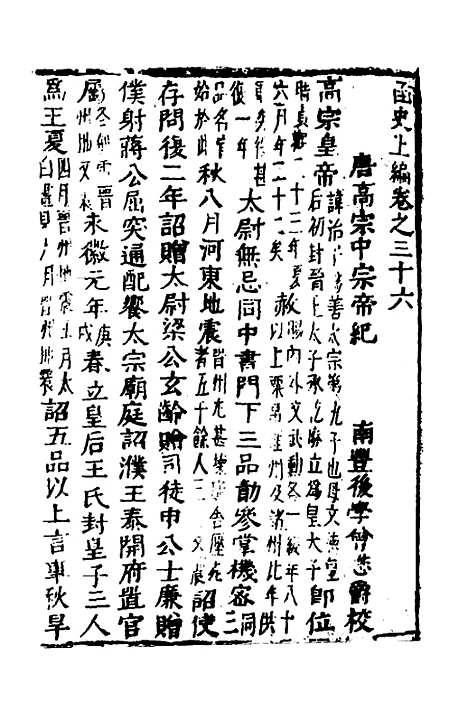 函史上編卷之三十六
唐高宗中宗帝紀
南豐後學曾懋爵校
高宗皇帝諱治字爲善太宗第九子也母文德皇后初封晉王太子承乾廢立爲皇太子即位
時真年二十二年夏六月年二十二矣赦賜內外文武勳各一級年八十以上粟帛雍州及諸州比年供
復一年太尉無忌同中書門下三品勣參掌機密同三
品名始於此秋八月河東地震晉州尤甚壞廬舍壓死者五十餘人詔使
存問後二年詔贈太尉梁公玄齡贈司徒申公士廉贈
僕射蔣公屈突通配饗太宗廟庭詔濮王泰開府置官
屬永徽元年庚戌春立皇后王氏封皇子三人
爲王夏四月晉州地震五月太白晝見六月晉州地震詔五品以上言事秋旱